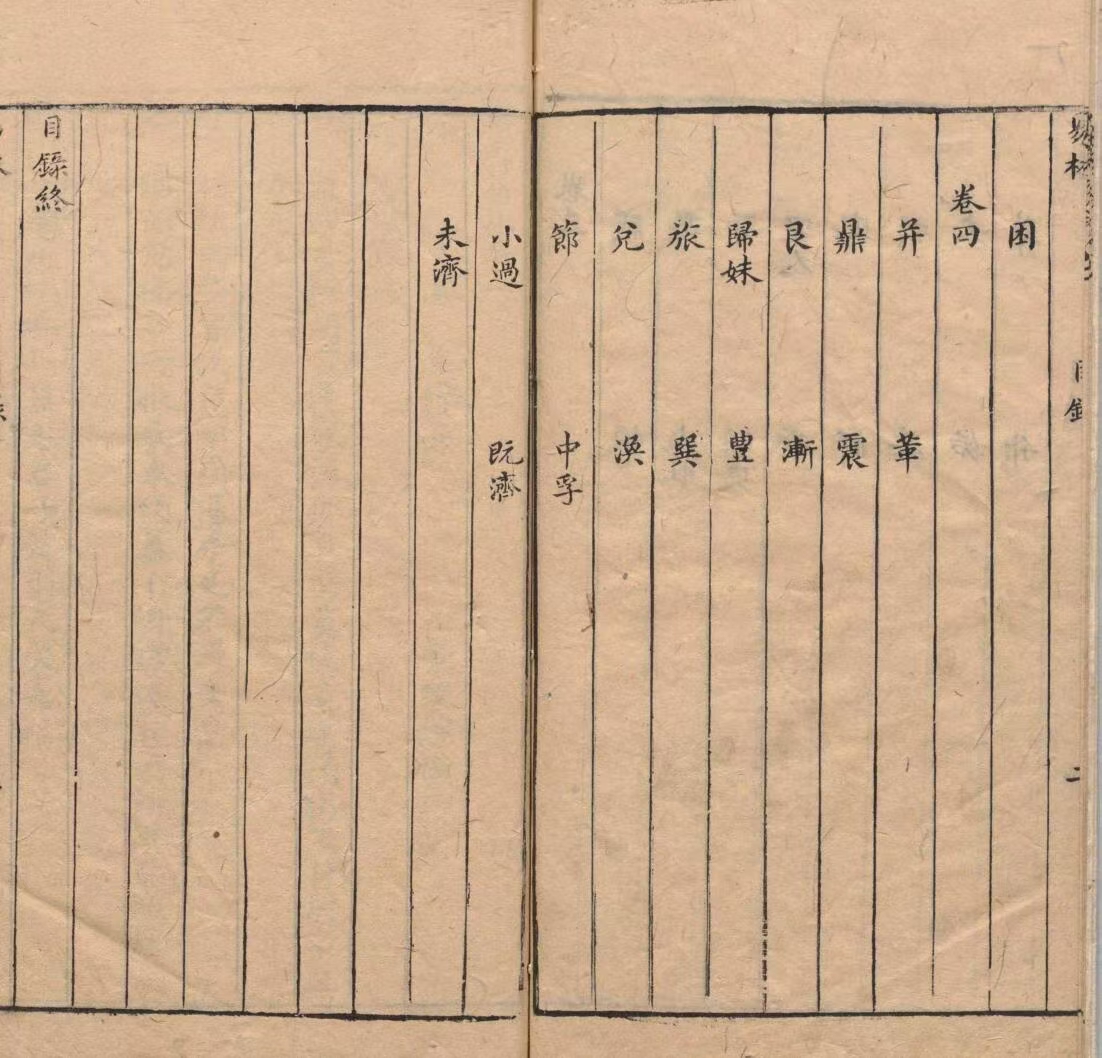 易林 目錄 二
困
卷四
井 革
鼎 震
艮 漸
歸妹 豊
旅 巽
兌 渙
節 中孚
小過 既濟
未濟
目錄終